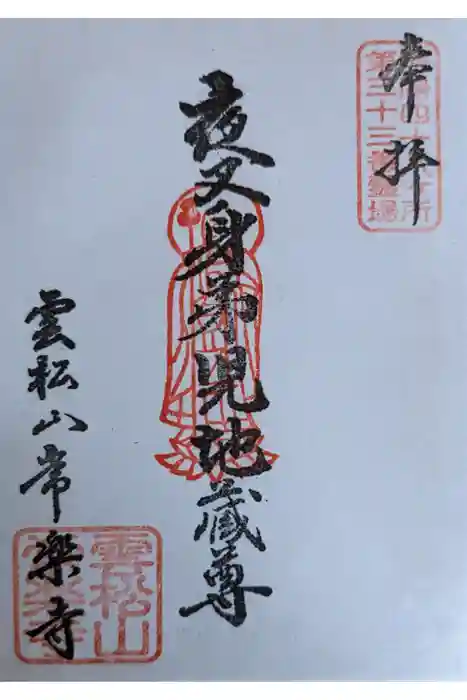 奉拝
第三十三番霊場
夜叉身弟児地蔵尊
雲松山常楽寺
雲松山
常楽寺